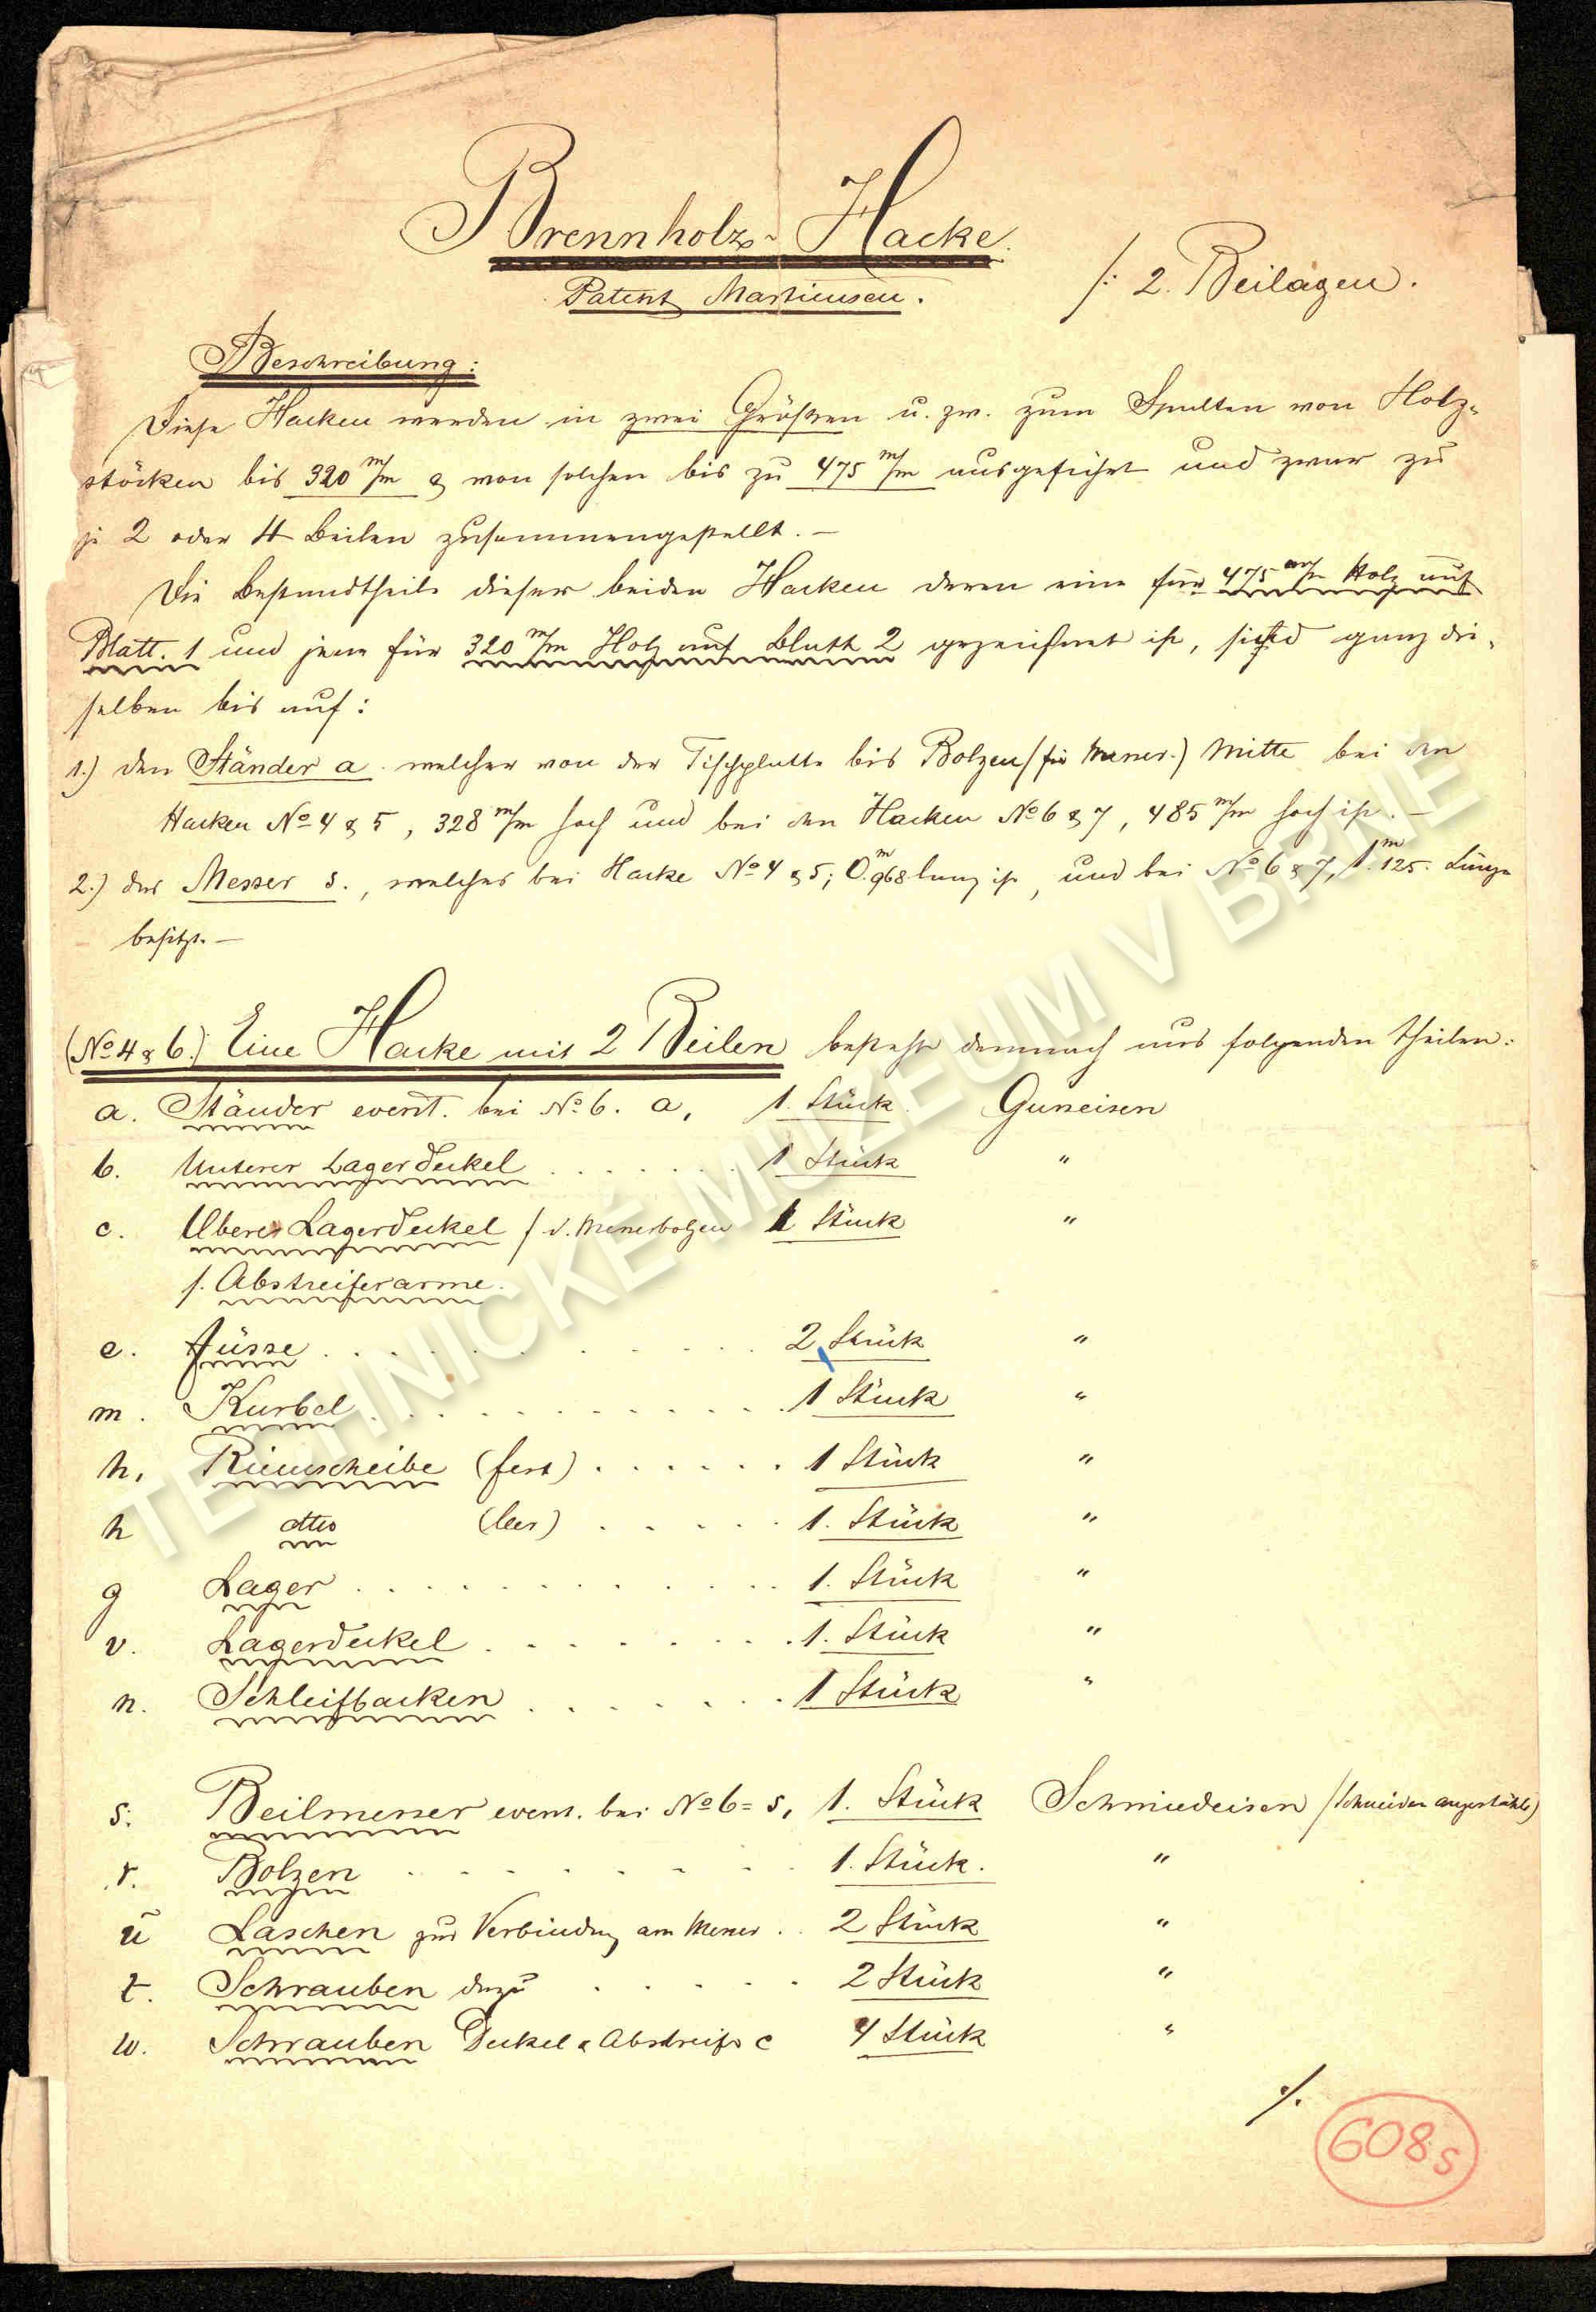 Brennholz-Hacke.
Patent Martiensen.
/: 2. Beilagen.
Beschreibung:
Diese Hacken werden in zwei Größen u. zw. zum Spalten von Holz-
stöcken bis 320 m/m & von solchen bis zu 475 m/m ausgeführt und zwar zu
je 2 oder 4 Beilen zusammengestellt. —
Die Bestandtheile dieser beiden Hacken deren eine für 475 m/m Holz auf
Blatt. 1 und jene für 320 m/m Holz auf Blatt 2 gezeichnet ist, sind ganz die-
selben bis auf:
1.) den Ständer a. welcher von der Tischplatte bis Bolzen (für Messer.) Mitte bei den
Hacken No 4 & 5, 328 m/m hoch und bei den Hacken No 6 & 7, 485 m/m hoch ist. —
2.) das Messer s., welches bei Hacke No 4 & 5; 0.m968 lang ist, und bei No 6 & 7, 1.m125. Länge
besitzt. —
(No 4 & 6.) Eine Hacke mit 2 Beilen besteht demnach aus folgenden Theilen:
a. Ständer event. bei No 6. a, 1. Stück Gusseisen
b. Unterer Lagerdeckel . . . . . . 1 Stück "
c. Oberer Lagerdeckel / d. Messerbolzen 1 Stück "
f. Abstreiferarme.
e. Füsse . . . . . . . . . . 2 Stück "
m. Kurbel . . . . . . . . . . 1 Stück "
h, Riemscheibe (fest) . . . . . . 1 Stück "
h dtto (leer) . . . . . 1. Stück "
g Lager . . . . . . . . . . 1. Stück "
v. Lagerdeckel . . . . . . . . 1. Stück "
n. Schleifbacken . . . . . . . 1 Stück "
s. Beilmesser event. bei No 6 = s, 1. Stück Schmiedeisen /Schneiden angestählt)
r. Bolzen . . . . . . . . 1. Stück. "
u Laschen zur Verbindung am Messer . . 2 Stück "
t. Schrauben dazu . . . . . 2 Stück "
w. Schrauben Deckel & Abstreifr c 4 Stück "
./.
608s
TECHNICKÉ MUZEUM V BRNĚ